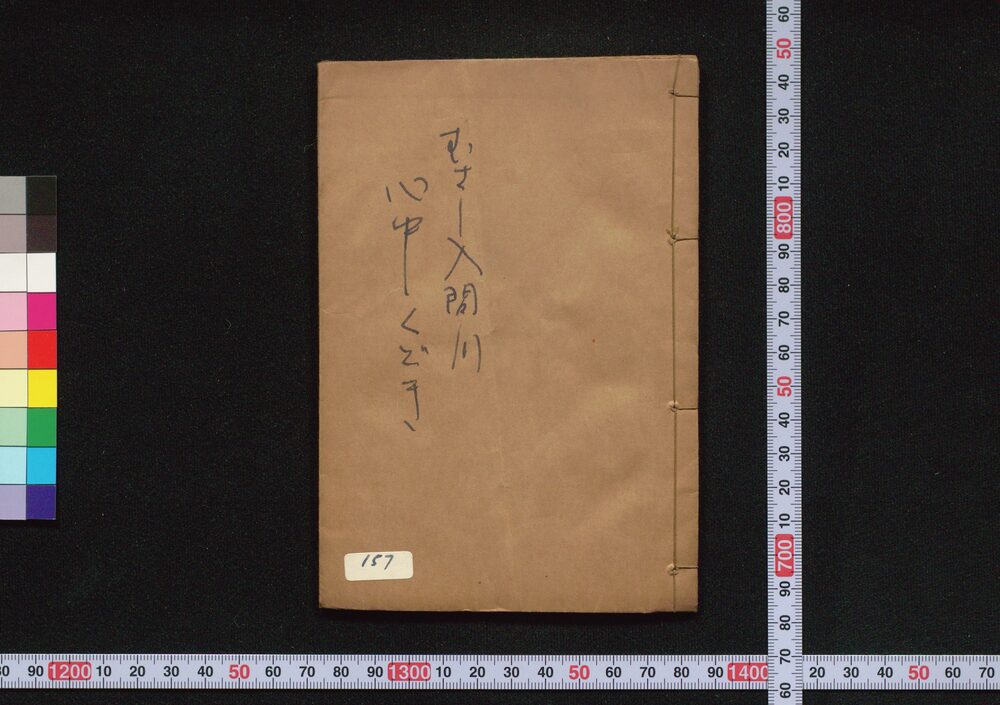 むさし入間川
心中くどき
157
60
50
40
30
20
10
800
90
80
70
60
50
40
30
20
10
700
90
80
70
60
80 90 1200 10 20 30 40 50 60 70 80 90 1300 10 20 30 40 50 60 70 80 90 1400 20 30 40 50 60 70